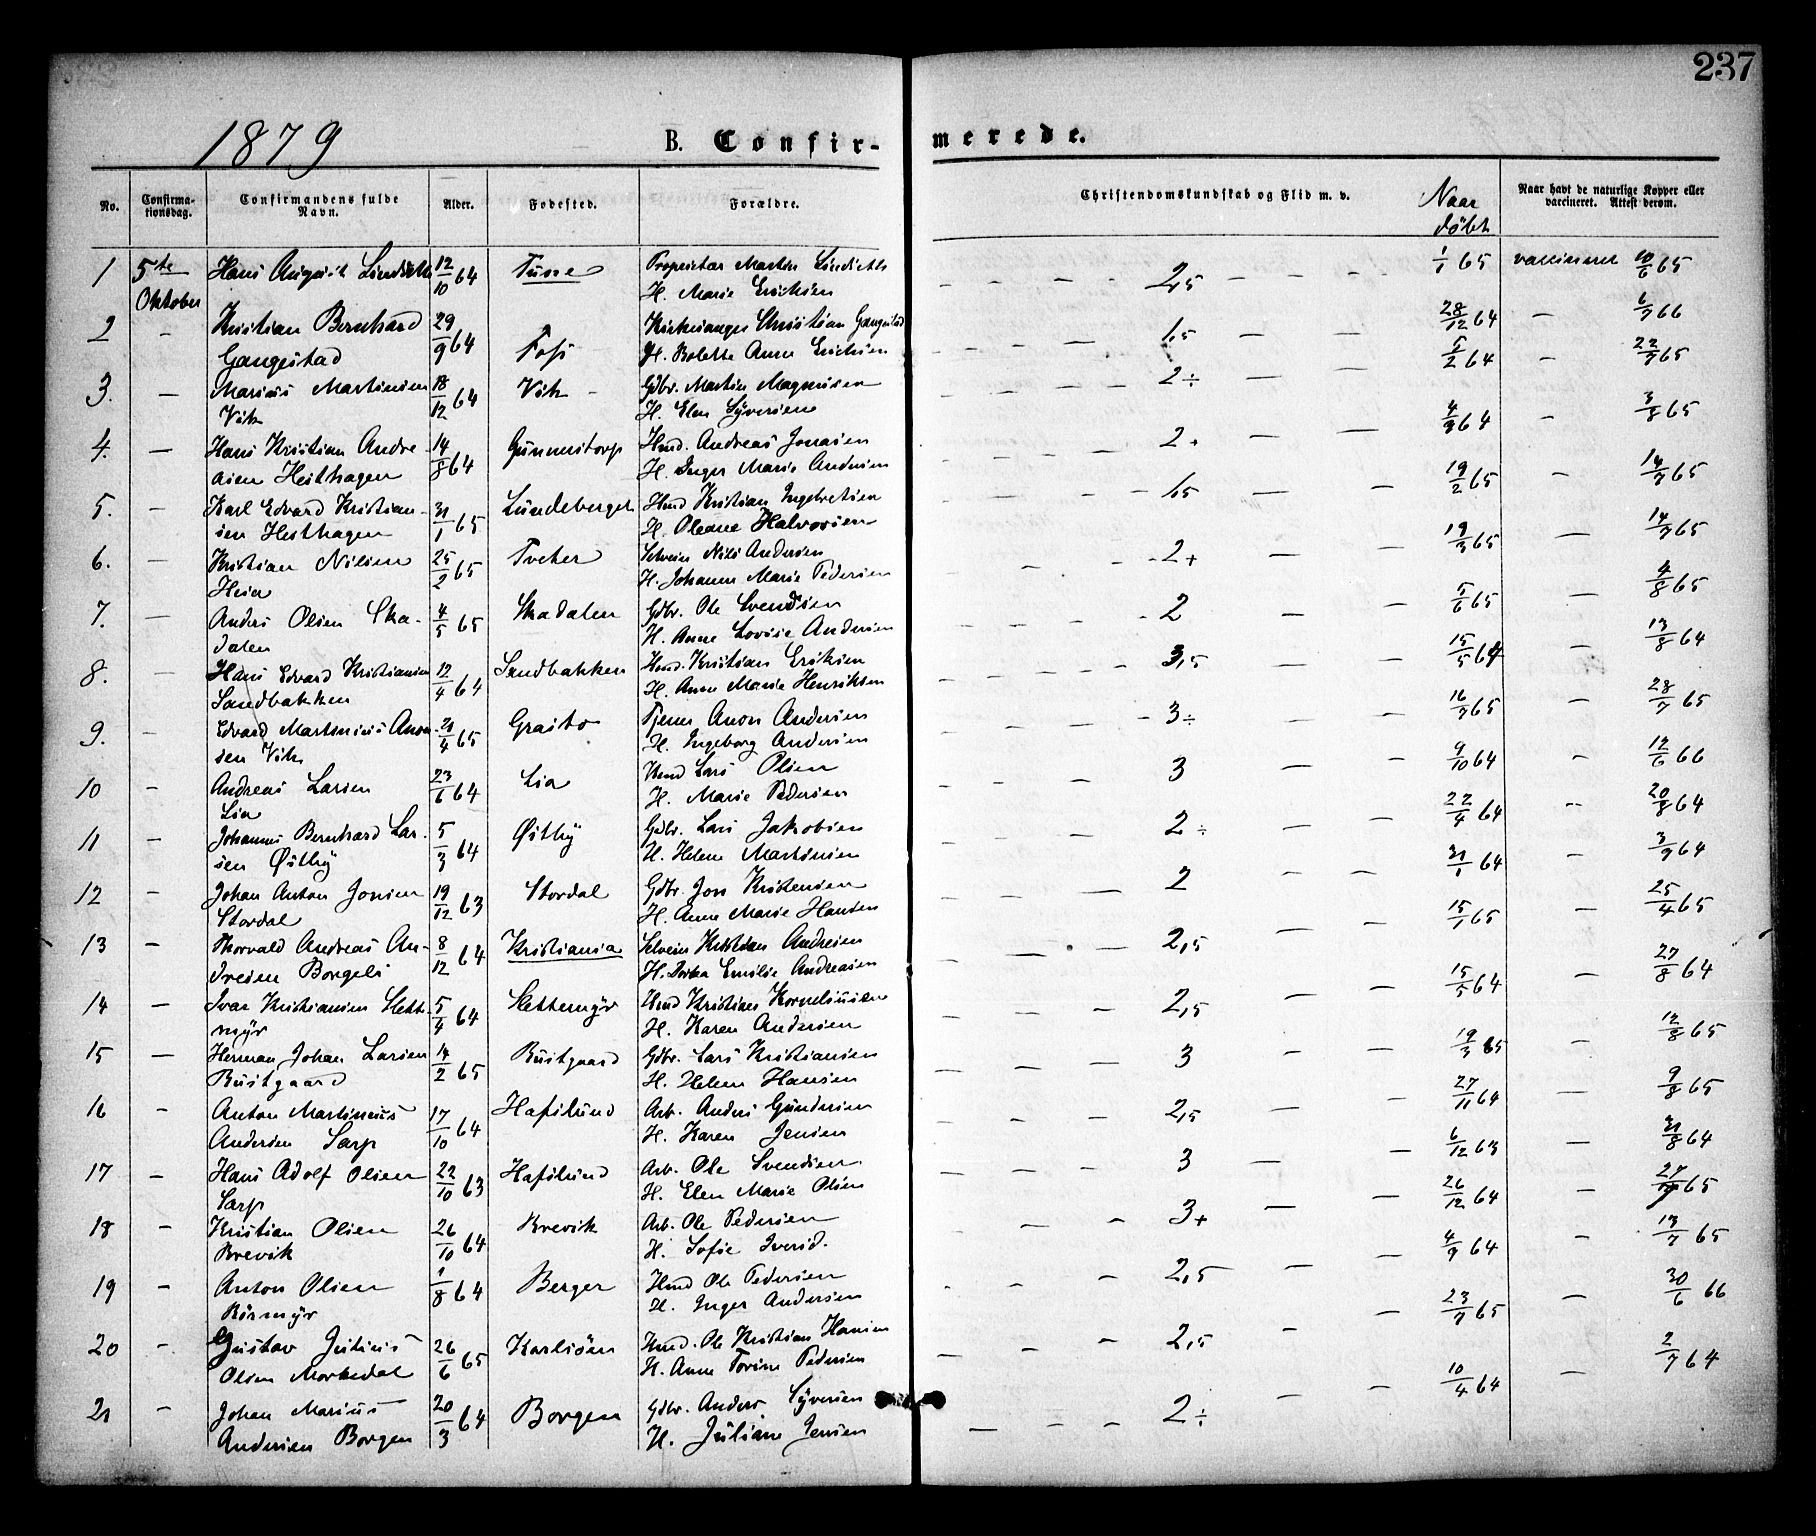 237
1879
B. Confir-
merede.
No.
Confirma-
tionsdag.
Confirmandens fulde
Navn.
Alder.
Fødested.
Forældre.
Christendomskundskab og Flid m. v.
Naar
døbt
Naar havt de naturlige Kopper eller
vaccineret. Attest derom.
1 5te Hans August Lindseth 12/10 64 Tune Proprietær Martin Lindseth 2,5 1/1 65 vaccineret 10/6 65
Oktober H. Marie Ericksen
2 - Kristian Bernhard 29/9 64 Foss Kirkesanger Christian Gangestad 1,5 28/12 64 - 6/7 66
Gangestad H. Bolette Anne Ericksen
3. - Marius Martinsen 18/12 64 Vik - Gdbr. Martin Magnusen 2÷ 5/2 64 - 22/7 65
Vik H. Elen Syversene
4. - Hans Kristian Andre- 14/8 64 Gunnestorp Hmd. Andreas Jonasen 2+ 4/9 64 - 3/8 65
asen Hesthagen H. Inger Marie Andersen
5. - Karl Edvard Kristian- 31/1 65 Lundeberget Hmd Kristian Ingebretsen 1,5 19/2 65 - 14/7 65
sen Hesthagen H. Oleane Halvorsen
6. - Kristian Nilsen 25/2 65 Tveter Selveier Nils Andersen 2+ 19/3 65 - 14/7 65
Heia H. Johanne Marie Pedersen
7. - Anders Olsen Ska- 4/5 65 Skadalen Gdbr. Ole Svendsen 2 5/6 65 4/8 65
dalen H. Anne Lovise Andersen
8. - Hans Edvard Kristiansen 12/4 64 Sandbakken Hmd. Kristian Eriksen 3,5 15/5 64 13/8 64
Sandbakken H. Anne Marie Henriksen
9. - Edvard Martinius Anon- 21/4 65 Graato Tjener Anon Andersen 3÷ 16/7 65 - 28/7 65
sen Vik H. Ingeborg Andersen
10 - Andreas Larsen 23/6 64 Lia Hmd Lars Olsen 3 9/10 64 - 12/6 66
Lia H. Marie Pedersen
11 - Johannes Bernhard Lar- 5/3 64 Østby Gdbr. Lars Jakobsen 2÷ 22/4 64 - 20/8 64
sen Østby H. Helene Martinsen
12 - Johan Anton Jonsen 19/12 63 Stordal Gdbr. Jon Kristensen 2 31/1 64 - 3/9 64
Stordal H. Anne Marie Hansen
13 - Thorvald Andreas An- 8/12 64 Kristiania Selveier Kristian Andresen 2,5 15/1 65 - 25/4 65
dresen Borgeli H. Dorka Emilie Andreasen
14 - Ivar Kristiansen Slette- 5/4 64 Slettemyr Hmd Kristian Korneliusen 2,5 15/5 64 - 27/8 64
myr H. Karen Andersen
15 - Herman Johan Larsen 14/2 65 Bustgaard Gdbr. Lars Kristiansen 3 19/3 65 - 12/8 65
Bustgaard H. Helene Hansen
16 - Anton Martinius 17/10 64 Hafslund Arb. Anders Gundersen 2,5 27/11 64 - 9/8 65
Andersen Sarp H. Karen Jensen
17 - Hans Adolf Olsen 22/10 63 Hafslund Arb. Ole Svendsen 3 6/12 63 - 31/8 64
Sarp H. Elen Marie Olsen
18 - Kristian Olsen 26/10 64 Brevik Arb. Ole Pedersen 3+ 26/12 64 - 27/ 65
Brevik H. Sofie Iversd.
19 - Anton Olsen 1/8 64 Berger Hmd Ole Pedersen 2,5 4/9 64 - 13/7 65
Børmyr H. Inger Andersen
20 - Gustav Julius 26/6 65 Karlsøen Hmd. Ole Kristian Hansen 2,5 23/7 65 - 30/6 66
Olsen Morkedal H. Anne Torine Pedersen
21 - Johan Marius 20/3 64 Borgen Gdbr. Anders Syversen 2÷ 10/4 64 - 2/7 64
Andersen Borgen H. Juliane Jensen